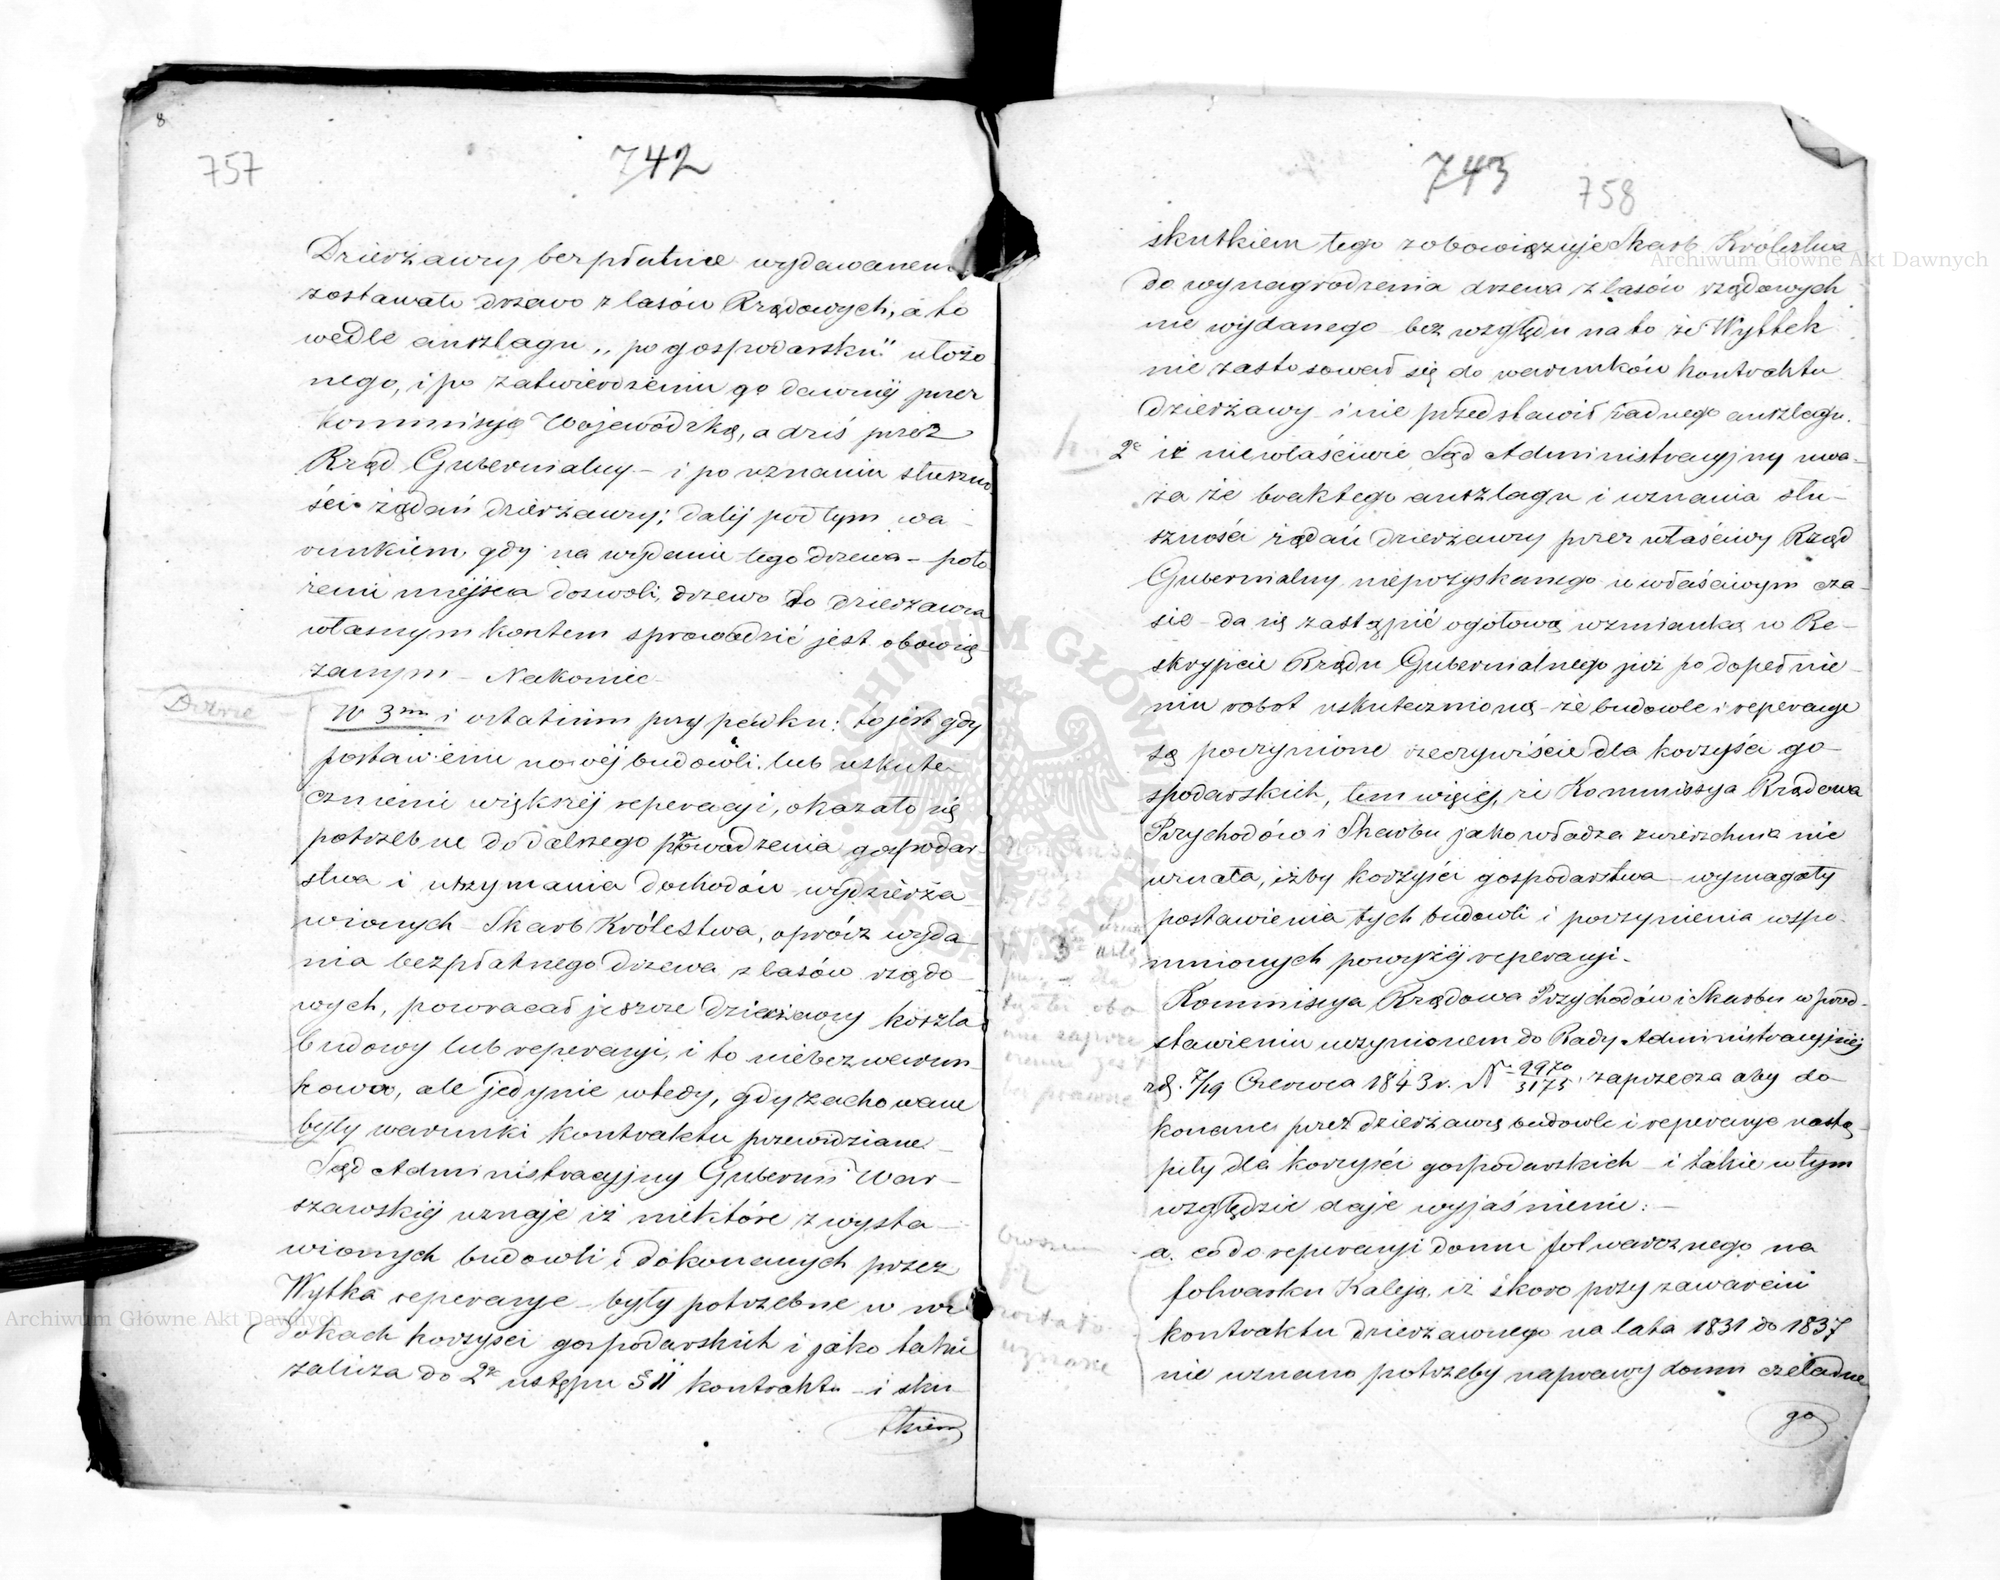 8
757
742
Dzierżawy bezpłatnie wydawanem
zostawało drzewo z lasów Rządowych, a to
wedle anszlagu „po gospodarsku" ułożo
nego, i po zatwierdzeniu go dawniej przez
Kommissyę Wojewódzką, a dziś przez
Rząd Gubernialny – i po uznaniu słuszno
ści żądań dzierżawcy; dalej pod tym wa-
runkiem, gdy na wydanie tego drzewa – poło
żenie miejsca dozwoli, drzewo to dzierżawca
własnym kosztem sprowadzić jest obowią
zanym – Nakoniec
W 3m i ostatnim przypadku: to jest gdy
postawienie nowej budowli lub uskute-
cznienie większej reperacyi, okazało się
potrzebne do dalszego prowadzenia gospodar-
stwa i utrzymania dochodów wydzierża
wionych – Skarb Królestwa, oprócz wyda-
nia bezpłatnego drzewa z lasów rządo-
wych, powracał jeszcze dzierżawcy koszta
budowy lub reperacyi, i to niebezwarun
kowo, ale jedynie wtedy, gdy zachowane
były warunki kontraktu przewidziane.
Sąd Administracyjny Gubernii War-
szawskiej uznaje iż niektóre z wysta-
wionych budowli i dokonanych przez
Wytka reperacye – były potrzebne w wi
dokach korzyści gospodarskich i jako takie
zalicza do 2o ustępu § 11 kontraktu – i sku-
tkiem
743
758
skutkiem tego zobowiązuje Skarb Królestwa
do wynagrodzenia drzewa z lasów rządowych
nie wydanego bez względu na to że Wyttek
nie zastosował się do warunków kontraktu
dzierżawy i nie przedstawił żadnego anszlagu.
2o iż niewłaściwie Sąd Administracyjny uwa-
ża że brak tego anszlagu i uznania słu-
szności żądań dzierżawcy przez właściwy Rząd
Gubernialny niepozyskanego w właściwym cza-
sie – da się zastąpić ogołową wzmianką w Re-
skrypcie Rządu Gubernialnego już po dopełnie-
niu robót uskutecznioną – że budowle i reperacye
są poczynione rzeczywiście dla korzyści go-
spodarskich, tem więcej, że Kommissya Rządowa
Przychodów i Skarbu jako władza zwierzchnia nie
uznała, iżby korzyści gospodarstwa – wymagały
postawienia tych budowli i poczynienia wspo-
mnionych powyżej reperacyi.
Kommissya Rządowa Przychodów i Skarbu w przed-
stawieniu uczynionem do Rady Administracyjnej
zd. 7/19 Czerwca 1843 r. No 9970/3175, zaprzecza aby do-
konane przez dzierżawcę budowle i reperacye nastą-
piły dla korzyści gospodarskich – i takie w tym
względzie daje wyjaśnienie: –
a. co do reperacyi domu folwarcznego na
folwarku Kaleja, iż skoro przy zawarciu
kontraktu dzierżawnego na lata 1831 do 1837
nie uznano potrzeby naprawy domu czeladne
go
Archiwum Główne Akt Dawnych
Archiwum Główne Akt Dawnych